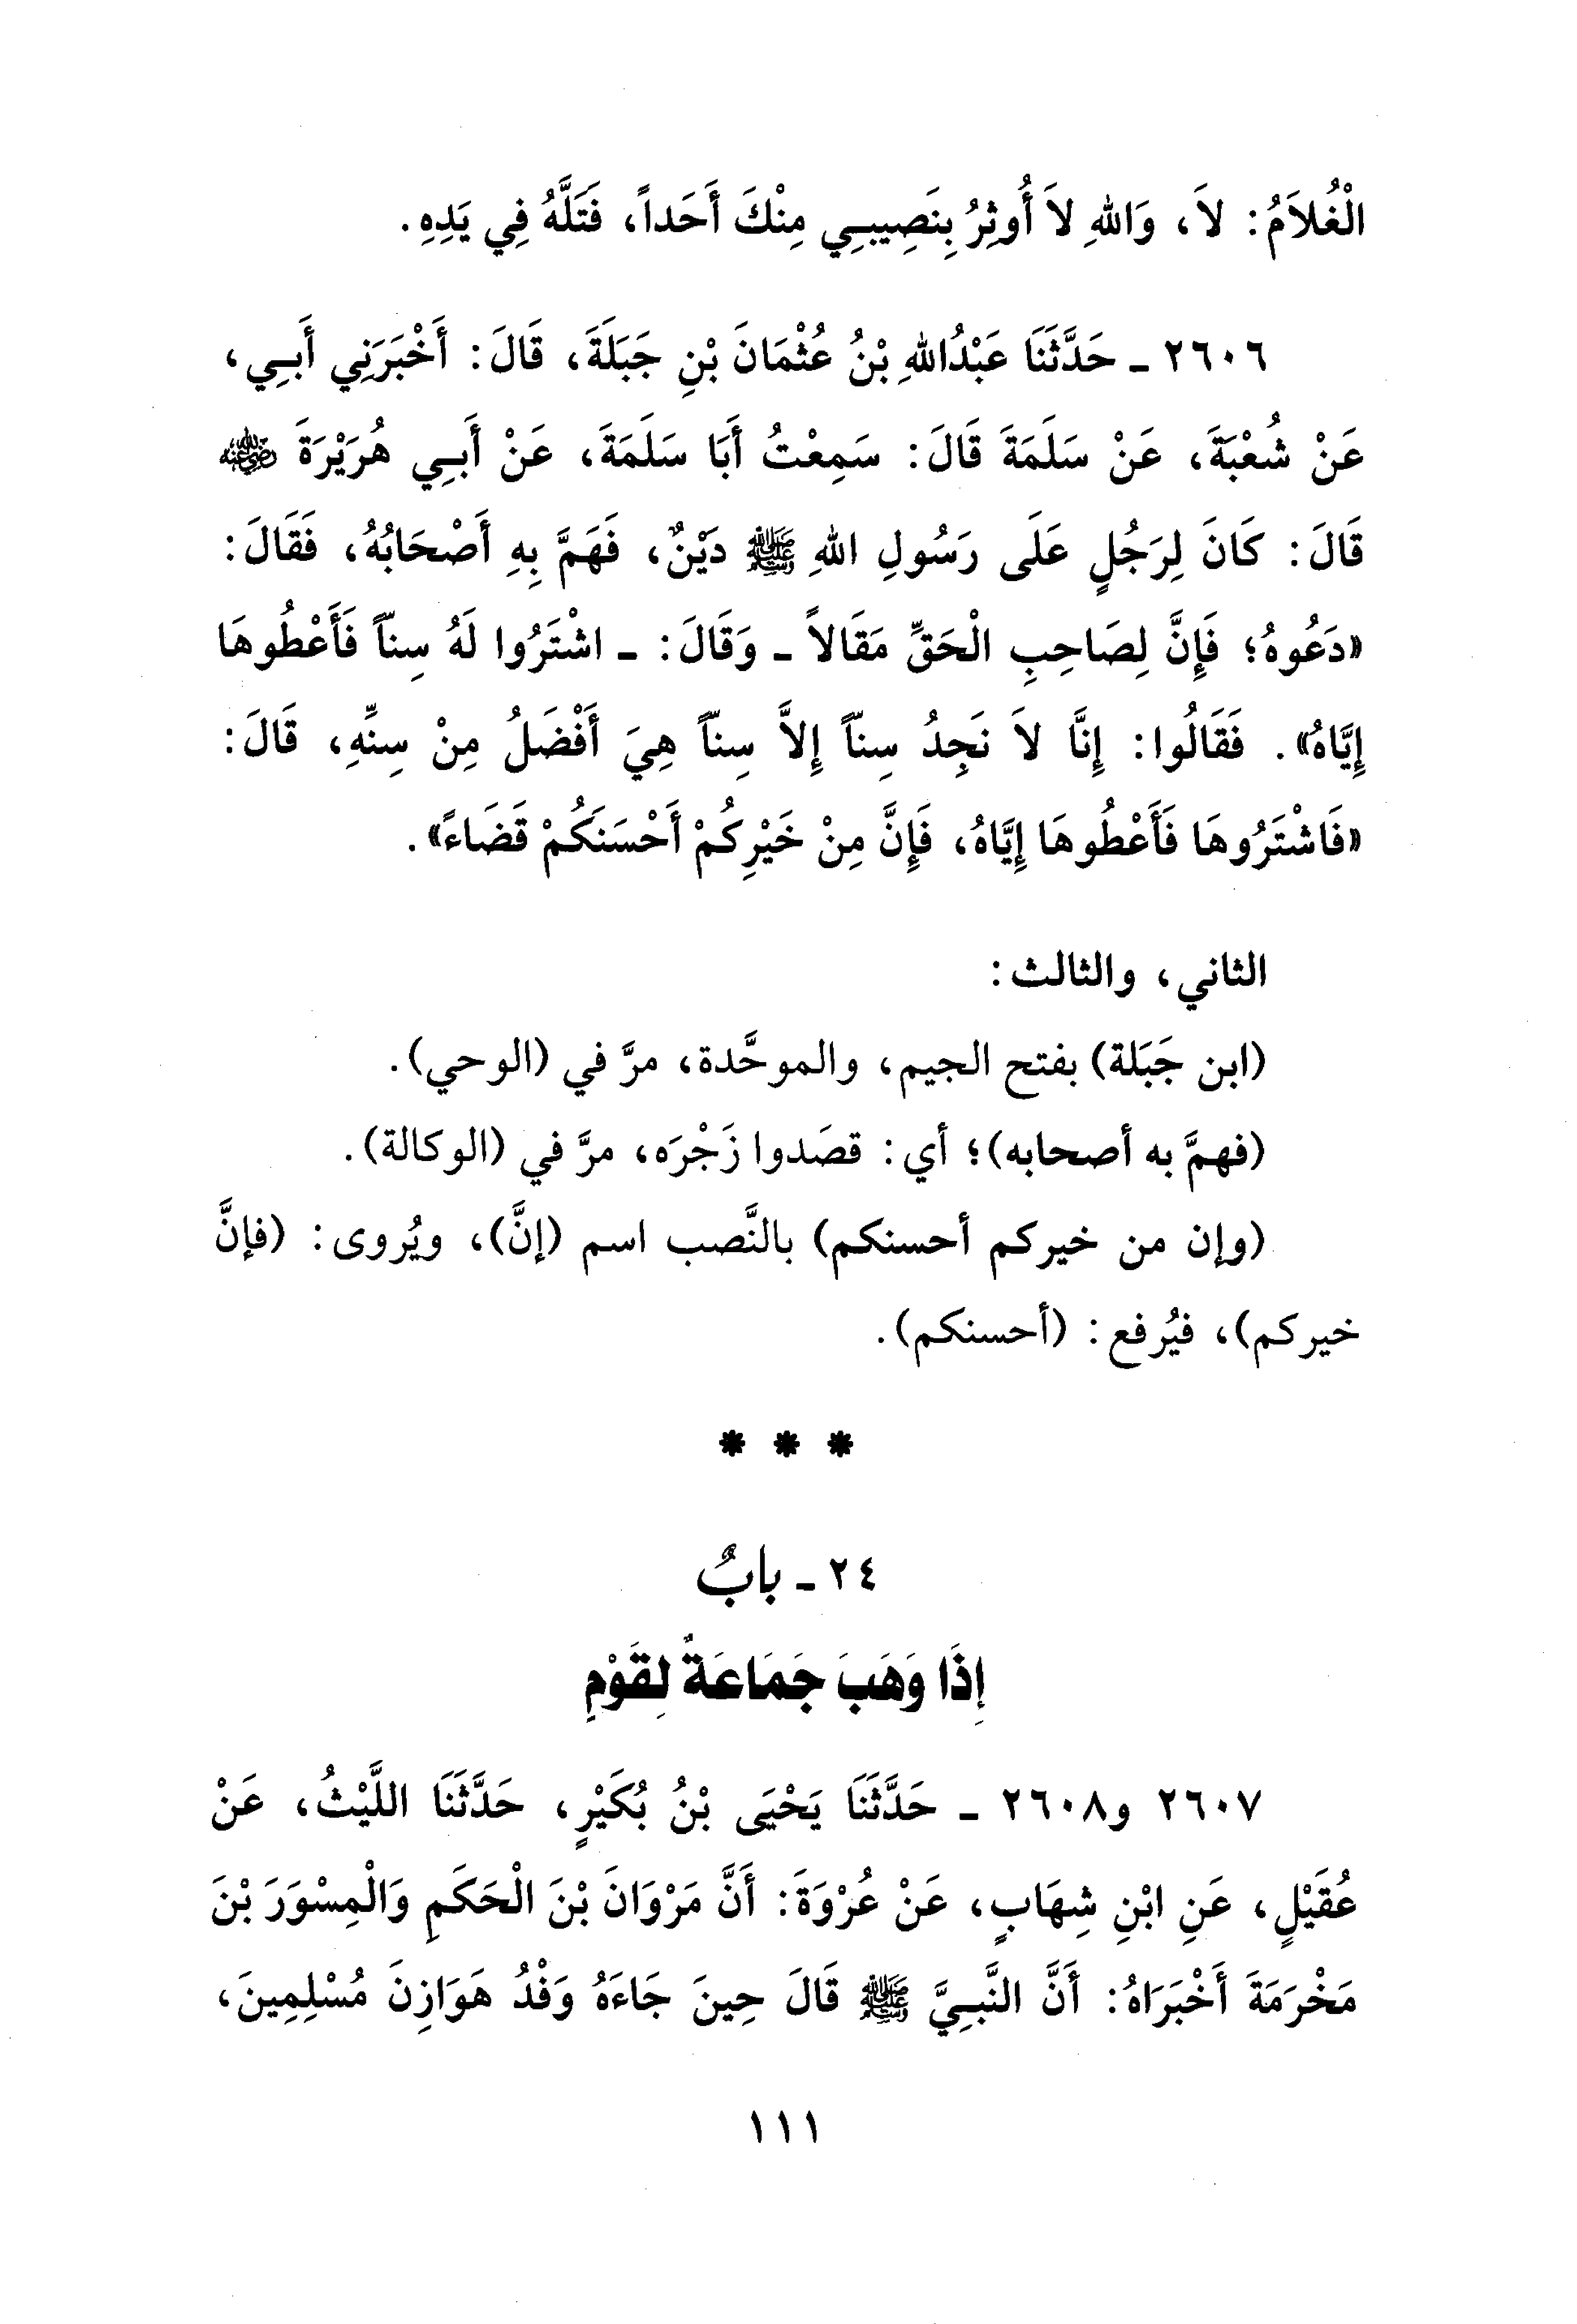 الْغُلاَمُ: لاَ، وَاللهِ لاَ أُوثِرُ بِنَصِيبِي مِنْكَ أَحَداً، فَتَلَّهُ فِي يَدِهِ.
٢٦٠٦ - حَدَّثَنَا عَبْدُاللهِ بْنُ عُثْمَانَ بْنِ جَبَلَةَ، قَالَ: أَخْبَرَنِي أَبِي،
عَنْ شُعْبَةَ، عَنْ سَلَمَةَ قَالَ: سَمِعْتُ أَبَا سَلَمَةَ، عَنْ أَبِي هُرَيْرَةَ رضي الله عنه
قَالَ: كَانَ لِرَجُلٍ عَلَى رَسُولِ اللهِ ﷺ دَيْنٌ، فَهَمَّ بِهِ أَصْحَابُهُ، فَقَالَ:
«دَعُوهُ؛ فَإِنَّ لِصَاحِبِ الْحَقِّ مَقَالاً - وَقَالَ: - اشْتَرُوا لَهُ سِنّاً فَأَعْطُوهَا
إِيَّاهُ». فَقَالُوا: إِنَّا لاَ نَجِدُ سِنّاً إِلاَّ سِنّاً هِيَ أَفْضَلُ مِنْ سِنِّهِ، قَالَ:
«فَاشْتَرُوهَا فَأَعْطُوهَا إِيَّاهُ، فَإِنَّ مِنْ خَيْرِكُمْ أَحْسَنَكُمْ قَضَاءً».
الثاني، والثالث:
(ابن جَبَلة) بفتح الجيم، والموحَّدة، مرَّ في (الوحي).
(فهمَّ به أصحابه)؛ أي: قصَدوا زَجْرَه، مرَّ في (الوكالة).
(وإن من خيركم أحسنكم) بالنَّصب اسم (إنَّ)، ويُروى: (فإنَّ
خيركم)، فيُرفع: (أحسنكم).
* * *
٢٤ - بابٌ
إِذَا وَهَبَ جَمَاعَةٌ لِقَوْمٍ
٢٦٠٧ و٢٦٠٨ - حَدَّثَنَا يَحْيَى بْنُ بُكَيْرٍ، حَدَّثَنَا اللَّيْثُ، عَنْ
عُقَيْلٍ، عَنِ ابْنِ شِهَابٍ، عَنْ عُرْوَةَ: أَنَّ مَرْوَانَ بْنَ الْحَكَمِ وَالْمِسْوَرَ بْنَ
مَخْرَمَةَ أَخْبَرَاهُ: أَنَّ النَّبِيَّ ﷺ قَالَ حِينَ جَاءَهُ وَفْدُ هَوَازِنَ مُسْلِمِينَ،
١١١